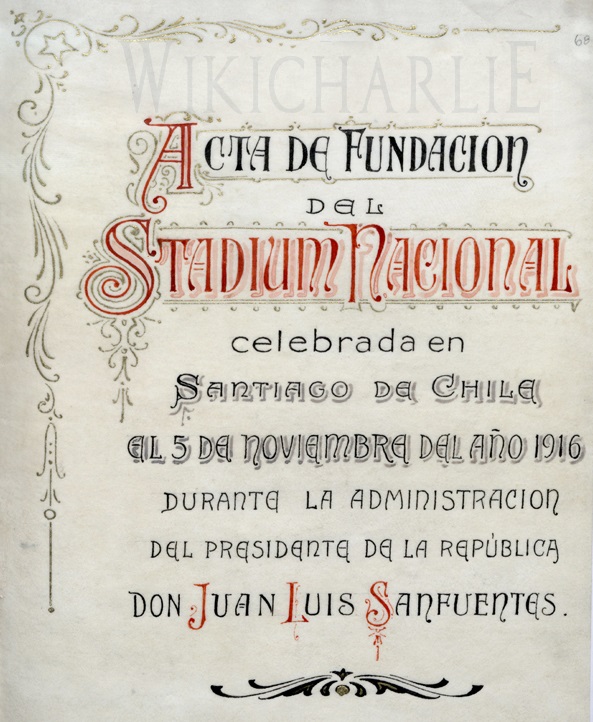 WIKICHARLIE
68
ACTA DE FUNDACION
DEL
STADIUM NACIONAL
celebrada en
SANTIAGO DE CHILE
EL 5 DE NOVIEMBRE DEL AÑO 1916
DURANTE LA ADMINISTRACION
DEL PRESIDENTE DE LA REPÚBLICA
DON JUAN LUIS SANFUENTES.